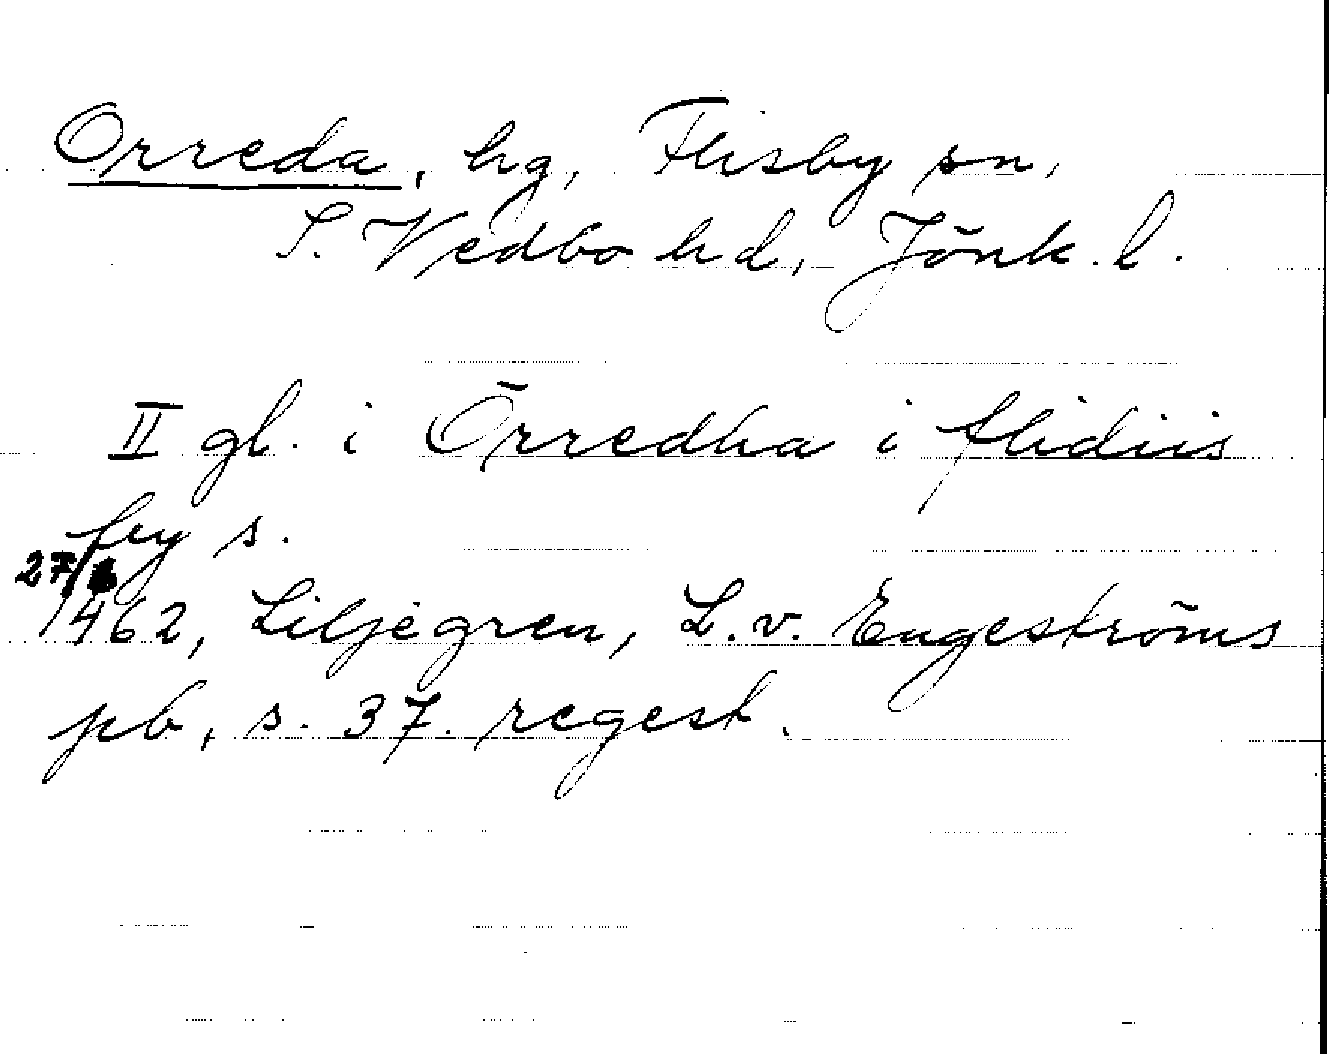 Orreda, hg, Flisby sn,
S. Vedbo hd, Jönk. l.
II gl. i Örredha i flidiis
by s.
27/
1462, Liljegren, L. v. Engeströms
pb, s. 37. regest.